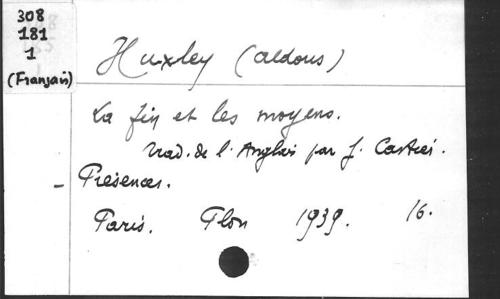 308
181
1
(Français)
Huxley (Aldous)
La fin et les moyens.
trad. de l'Anglais par J. Castier.
- Présences.
Paris. Plon 1939. 16.